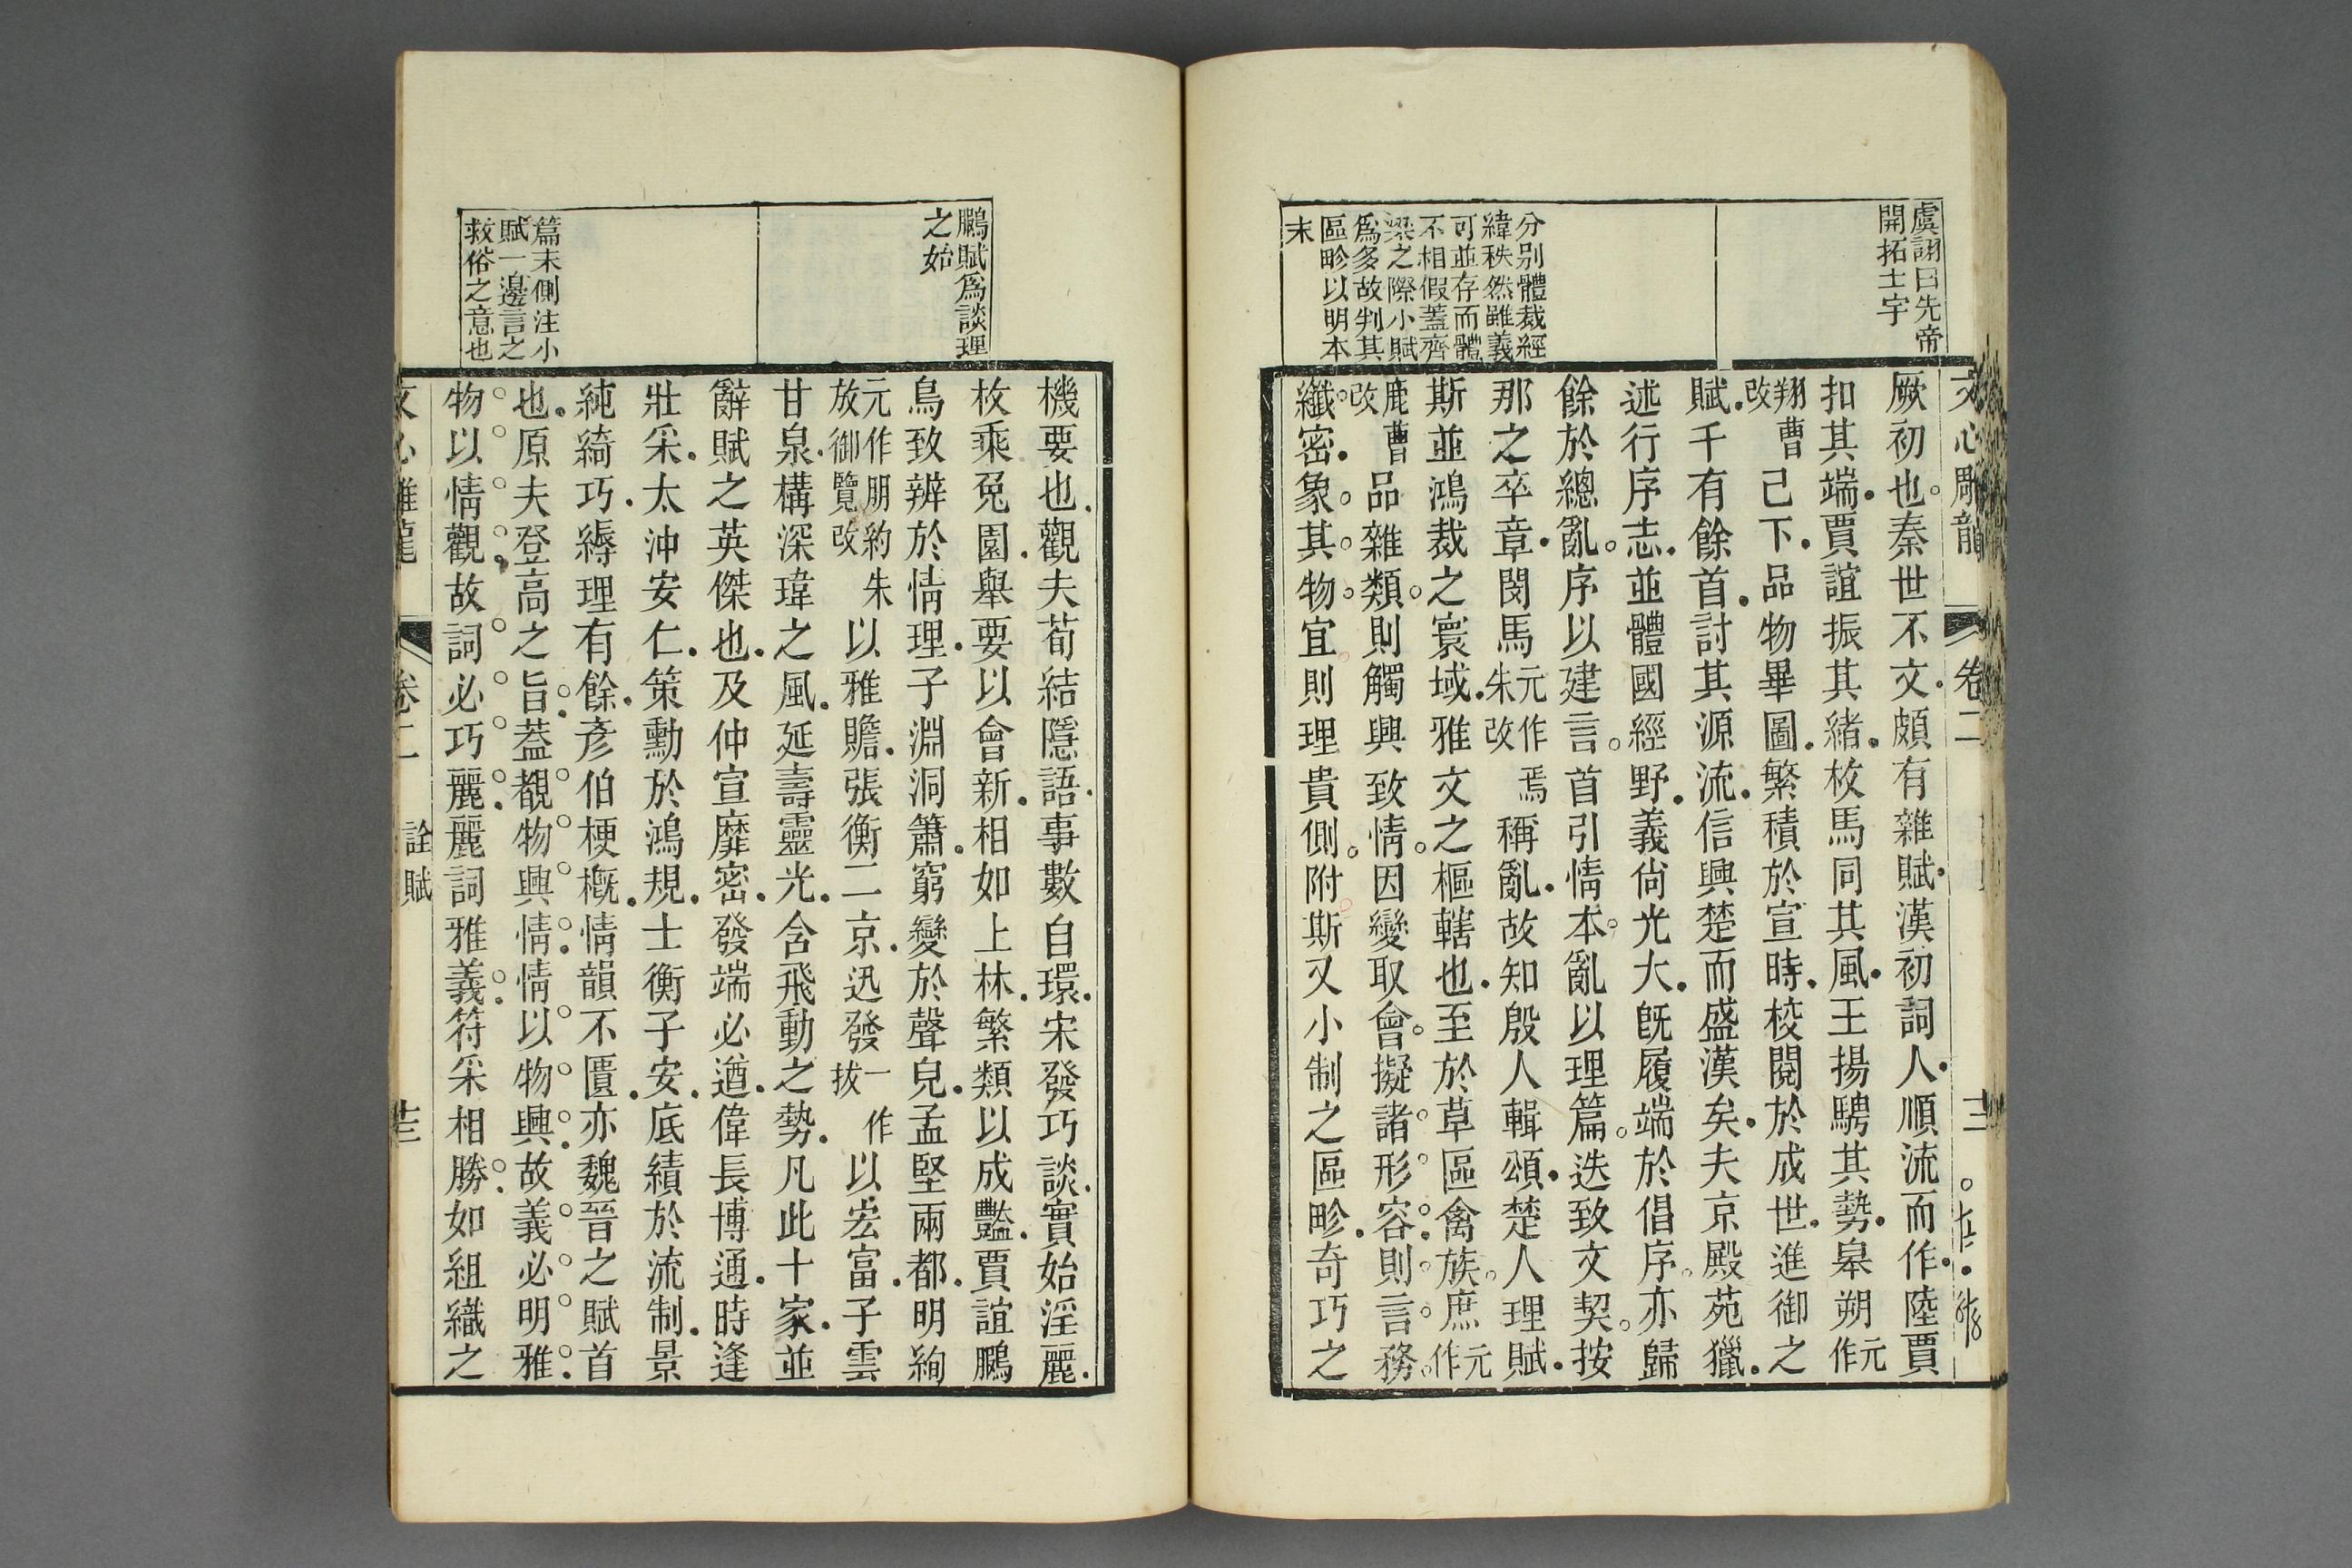 虞詡曰先帝
開拓土宇
分別體裁經
緯秩然雖義
可並存而體
不相假蓋齊
梁之際小賦
爲多故判其
區畛以明本
末
文心雕龍 卷二
厥初也秦世不文頗有雜賦漢初詞人順流而作陸賈
扣其端賈誼振其緒枚馬同其風王揚騁其勢皋朔元作
翔曹改已下品物畢圖繁積於宣時校閱於成世進御之
賦千有餘首討其源流信興楚而盛漢矣夫京殿苑獵
述行序志並體國經野義尙光大旣履端於倡序亦歸
餘於總亂序以建言首引情本亂以理篇迭致文契按
那之卒章閔馬元作焉朱改稱亂故知殷人輯頌楚人理賦
斯並鴻裁之寰域雅文之樞轄也至於草區禽族庶元作
鹿曹改品雜類則觸興致情因變取會擬諸形容則言務
纖密象其物宜則理貴側附斯又小制之區畛奇巧之
鵩賦爲談理
之始
篇末側注小
賦一邊言之
救俗之意也
機要也觀夫荀結隱語事數自環宋發巧談實始淫麗
枚乘兔園舉要以會新相如上林繁類以成豔賈誼鵩
鳥致辨於情理子淵洞簫窮變於聲皃孟堅兩都明絢
元作朋約朱放御覽改以雅贍張衡二京迅發一作拔以宏富子雲
甘泉構深瑋之風延壽靈光含飛動之勢凡此十家並
辭賦之英傑也及仲宣靡密發端必遒偉長博通時逢
壯采太沖安仁策勳於鴻規士衡子安底績於流制景
純綺巧縟理有餘彥伯梗槪情韻不匱亦魏晉之賦首
也原夫登高之旨蓋覩物興情情以物興故義必明雅
物以情觀故詞必巧麗麗詞雅義符采相勝如組織之
文心雕龍 卷二 詮賦 十三